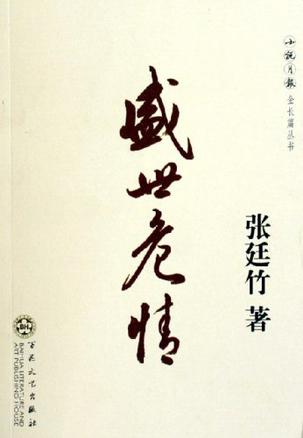 小说月报
金长篇丛书
盛世危情
张廷竹 著
BH
BAIHUA LITERATURE AND
ART PUBLISHING HOUSE
百花文艺出版社